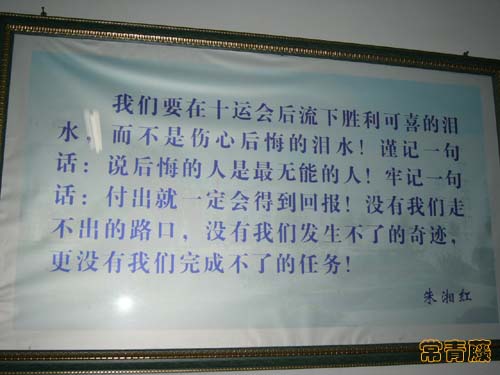 我们要在十运会后流下胜利可喜的泪
水，而不是伤心后悔的泪水！谨记一句
话：说后悔的人是最无能的人！牢记一句
话：付出就一定会得到回报！没有我们走
不出的路口，没有我们发生不了的奇迹，
更没有我们完成不了的任务！
朱湘红
常青藤